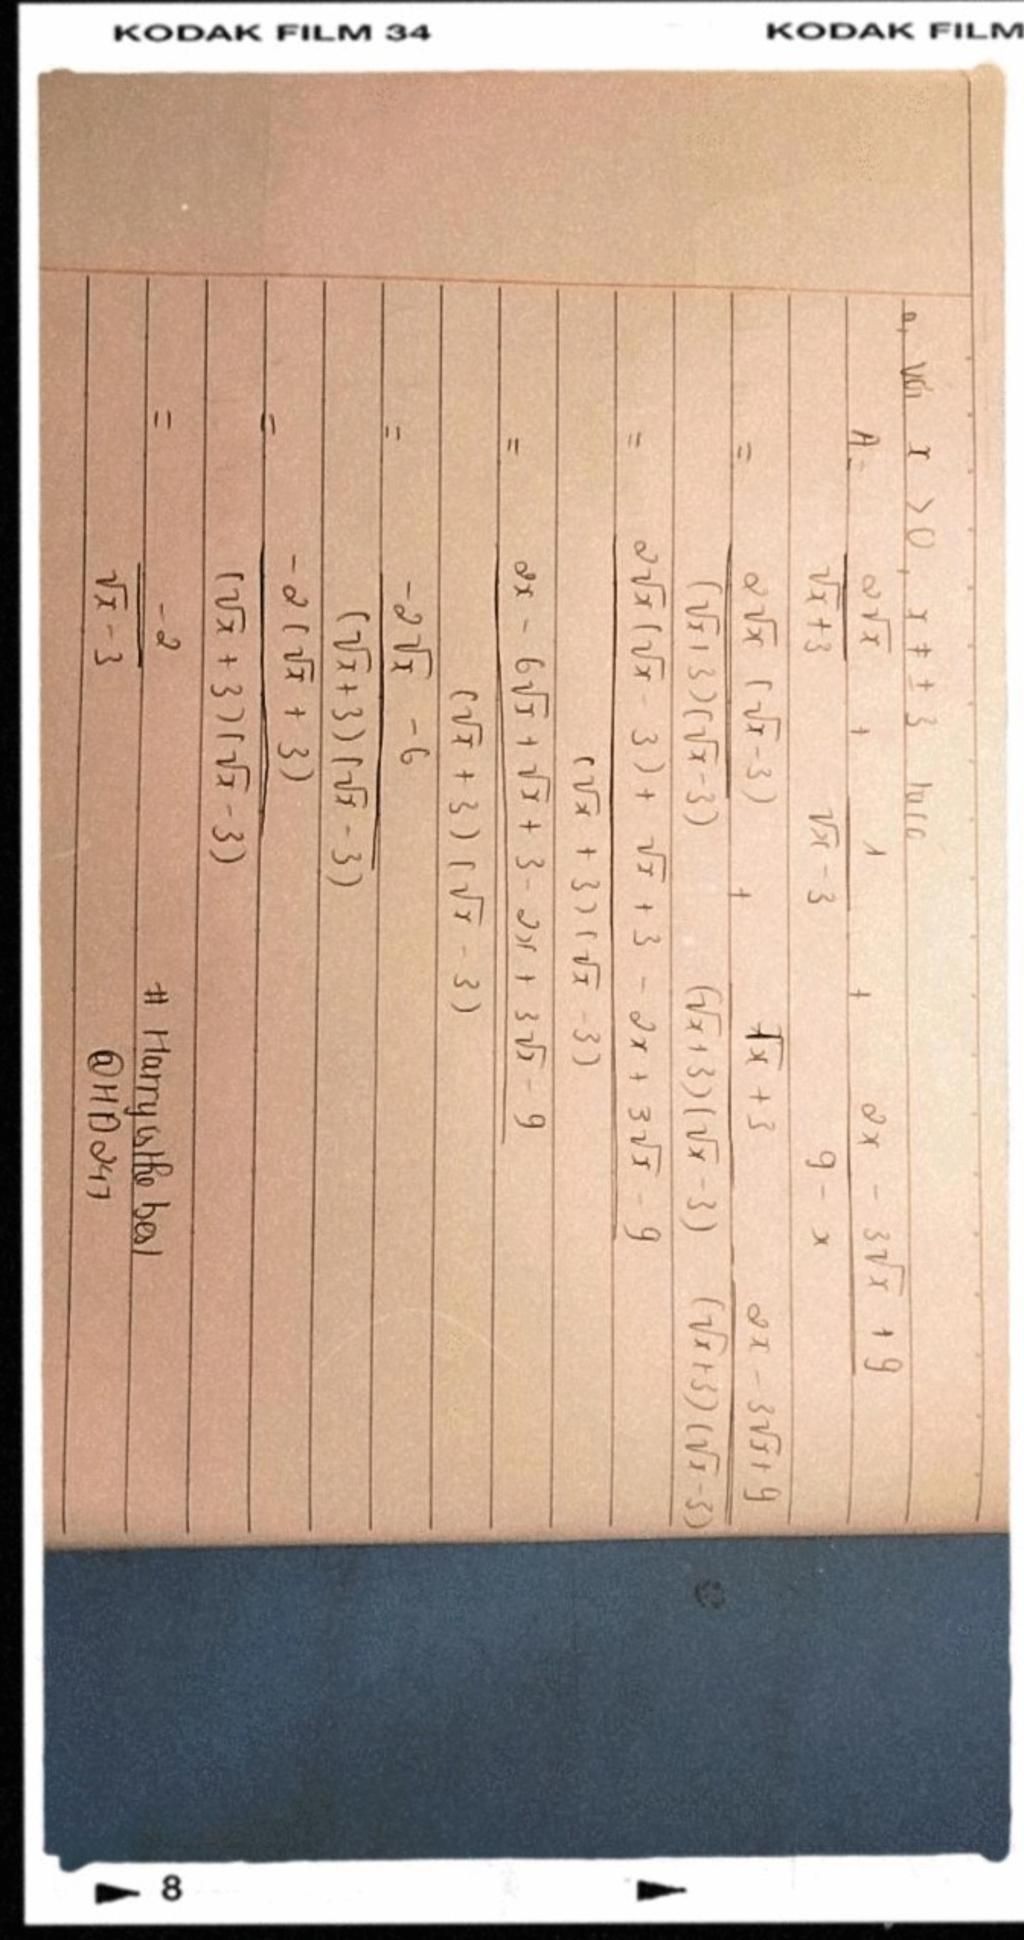 KODAK FILM 34
KODAK FILM
a, Với x > 0, x ≠ ± 3 ta có
A = 2√x / √x + 3 + 1 / √x - 3 + 2x - 3√x + 9 / 9 - x
= 2√x (√x - 3) / (√x + 3)(√x - 3) + √x + 3 / (√x + 3)(√x - 3) 2x - 3√x + 9 / (√x + 3)(√x - 3)
= 2√x (√x - 3) + √x + 3 - 2x + 3√x - 9 / (√x + 3)(√x - 3)
= 2x - 6√x + √x + 3 - 2x + 3√x - 9 / (√x + 3)(√x - 3)
= -2√x - 6 / (√x + 3)(√x - 3)
= -2(√x + 3) / (√x + 3)(√x - 3)
= -2 / √x - 3
# Harry is the best
8